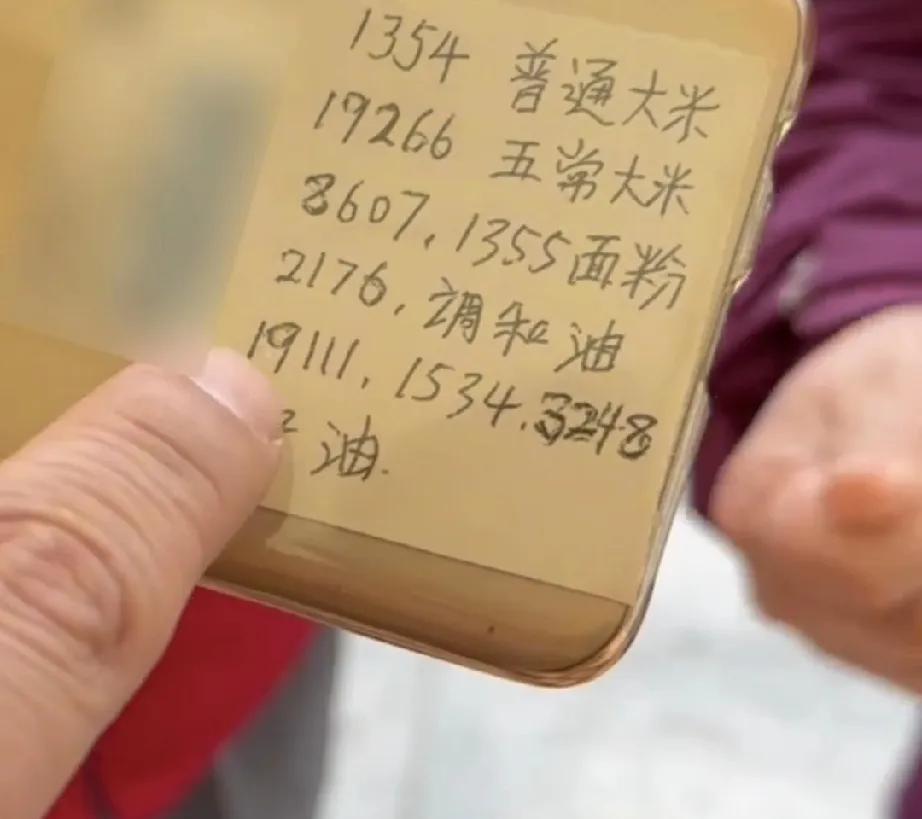 1354 普通大米
19266 五常大米
8607,1355面粉
2176,调和油
19111,1534,3248
油.